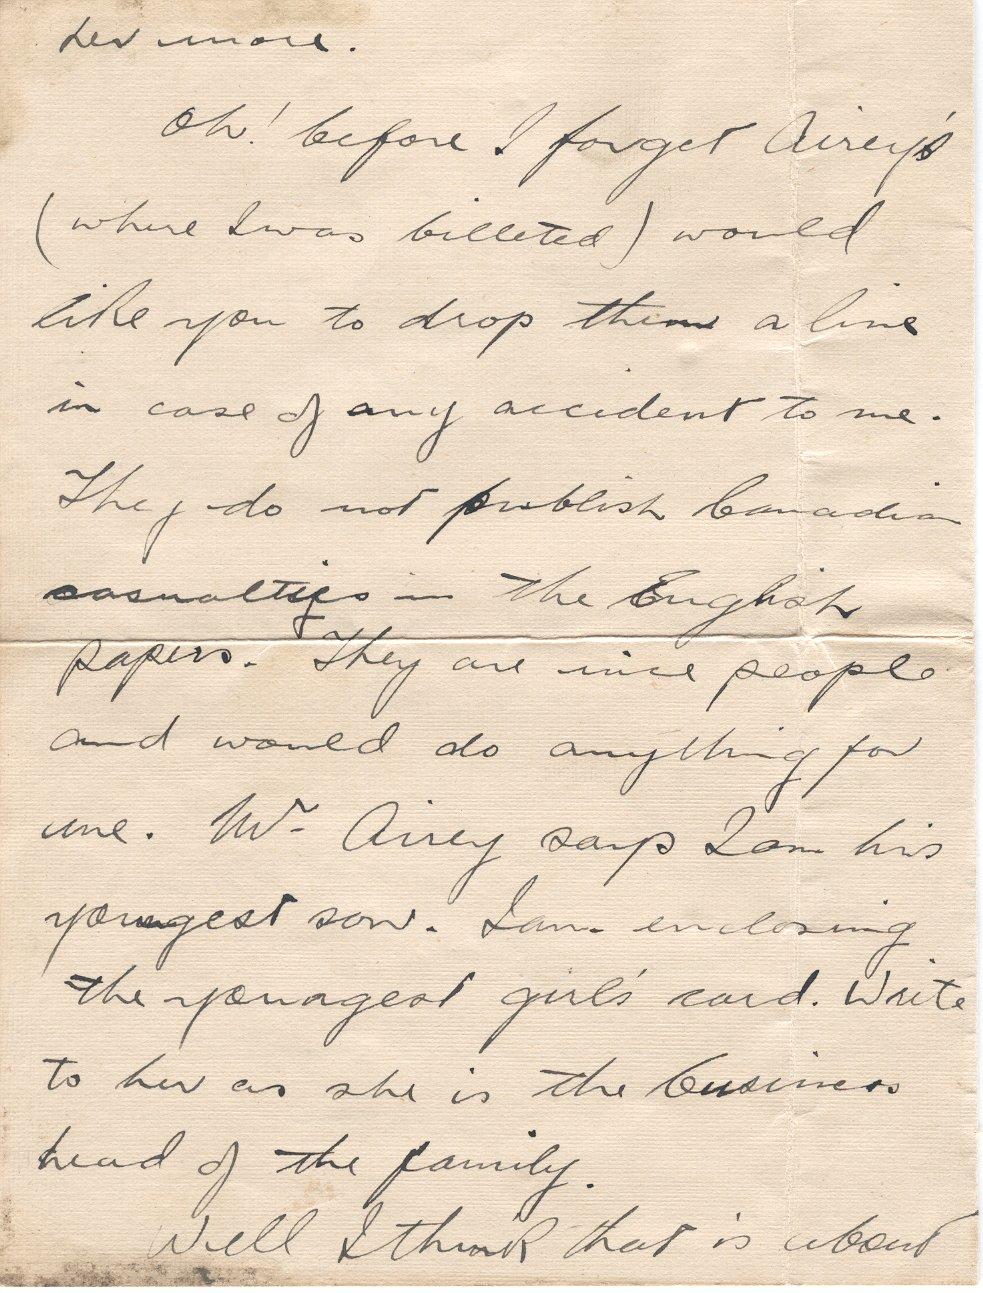 her more.
Oh! before I forget Airey's
(where I was billeted) would
like you to drop them a line
in case of any accident to me.
They do not publish Canadian
casualties in the English
papers. They are nice people
and would do anything for
me. Mr. Airey says I am his
youngest son. I am enclosing
the youngest girl's card. Write
to her as she is the business
head of the family.
Well I think that is about